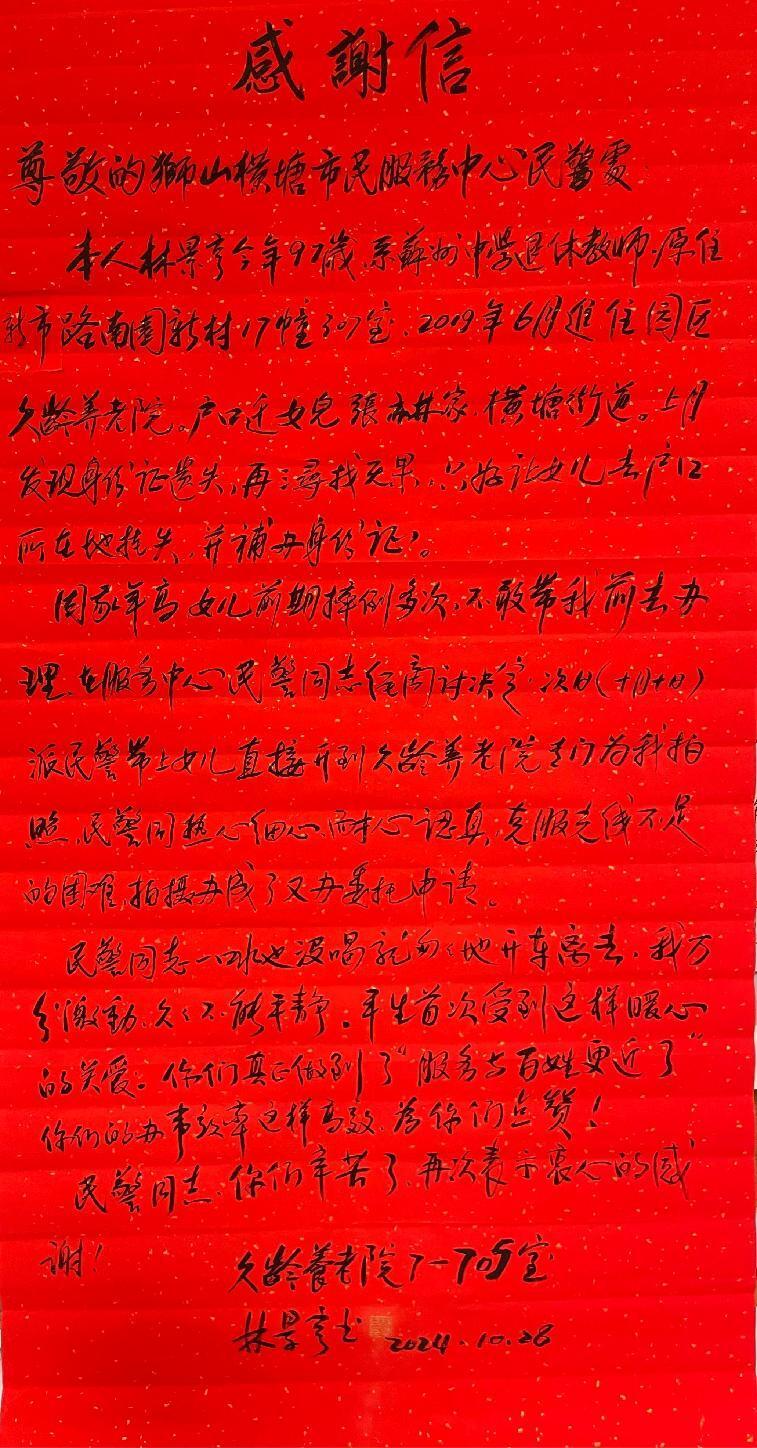 感謝信
尊敬的獅山横塘市民服務中心民警處
本人林景亨今年97歲,系蘇州中学退休教师,原住
新市路南園新村17幢307室,2019年6月進住园区
久龄养老院。户口迁女兒張林家横塘街道。上月
发现身份证遗失,再三尋找无果,只好让女儿去户口
所在地挂失,并補办身份证。
因我年高女儿前期摔倒多次,不敢带我前去办
理,在服务中心民警同志经商讨决定,次日(十月十日)
派民警带上女儿直接开到久龄养老院专门为我拍
照,民警同热心细心、耐心認真,克服光线不足
的困难,拍摄办成了又办委托申请。
民警同志一口水也没喝就匆匆地开车离去,我万
分激動,久久不能平静。平生首次受到这样暖心
的关爱:你们真正做到了"服务与百姓更近了"
你们的办事效率这样高效,為你们点赞!
民警同志,你们辛苦了,再次表示衷心的感
谢!
久龄養老院7-705室
林景亨书 2024.10.28